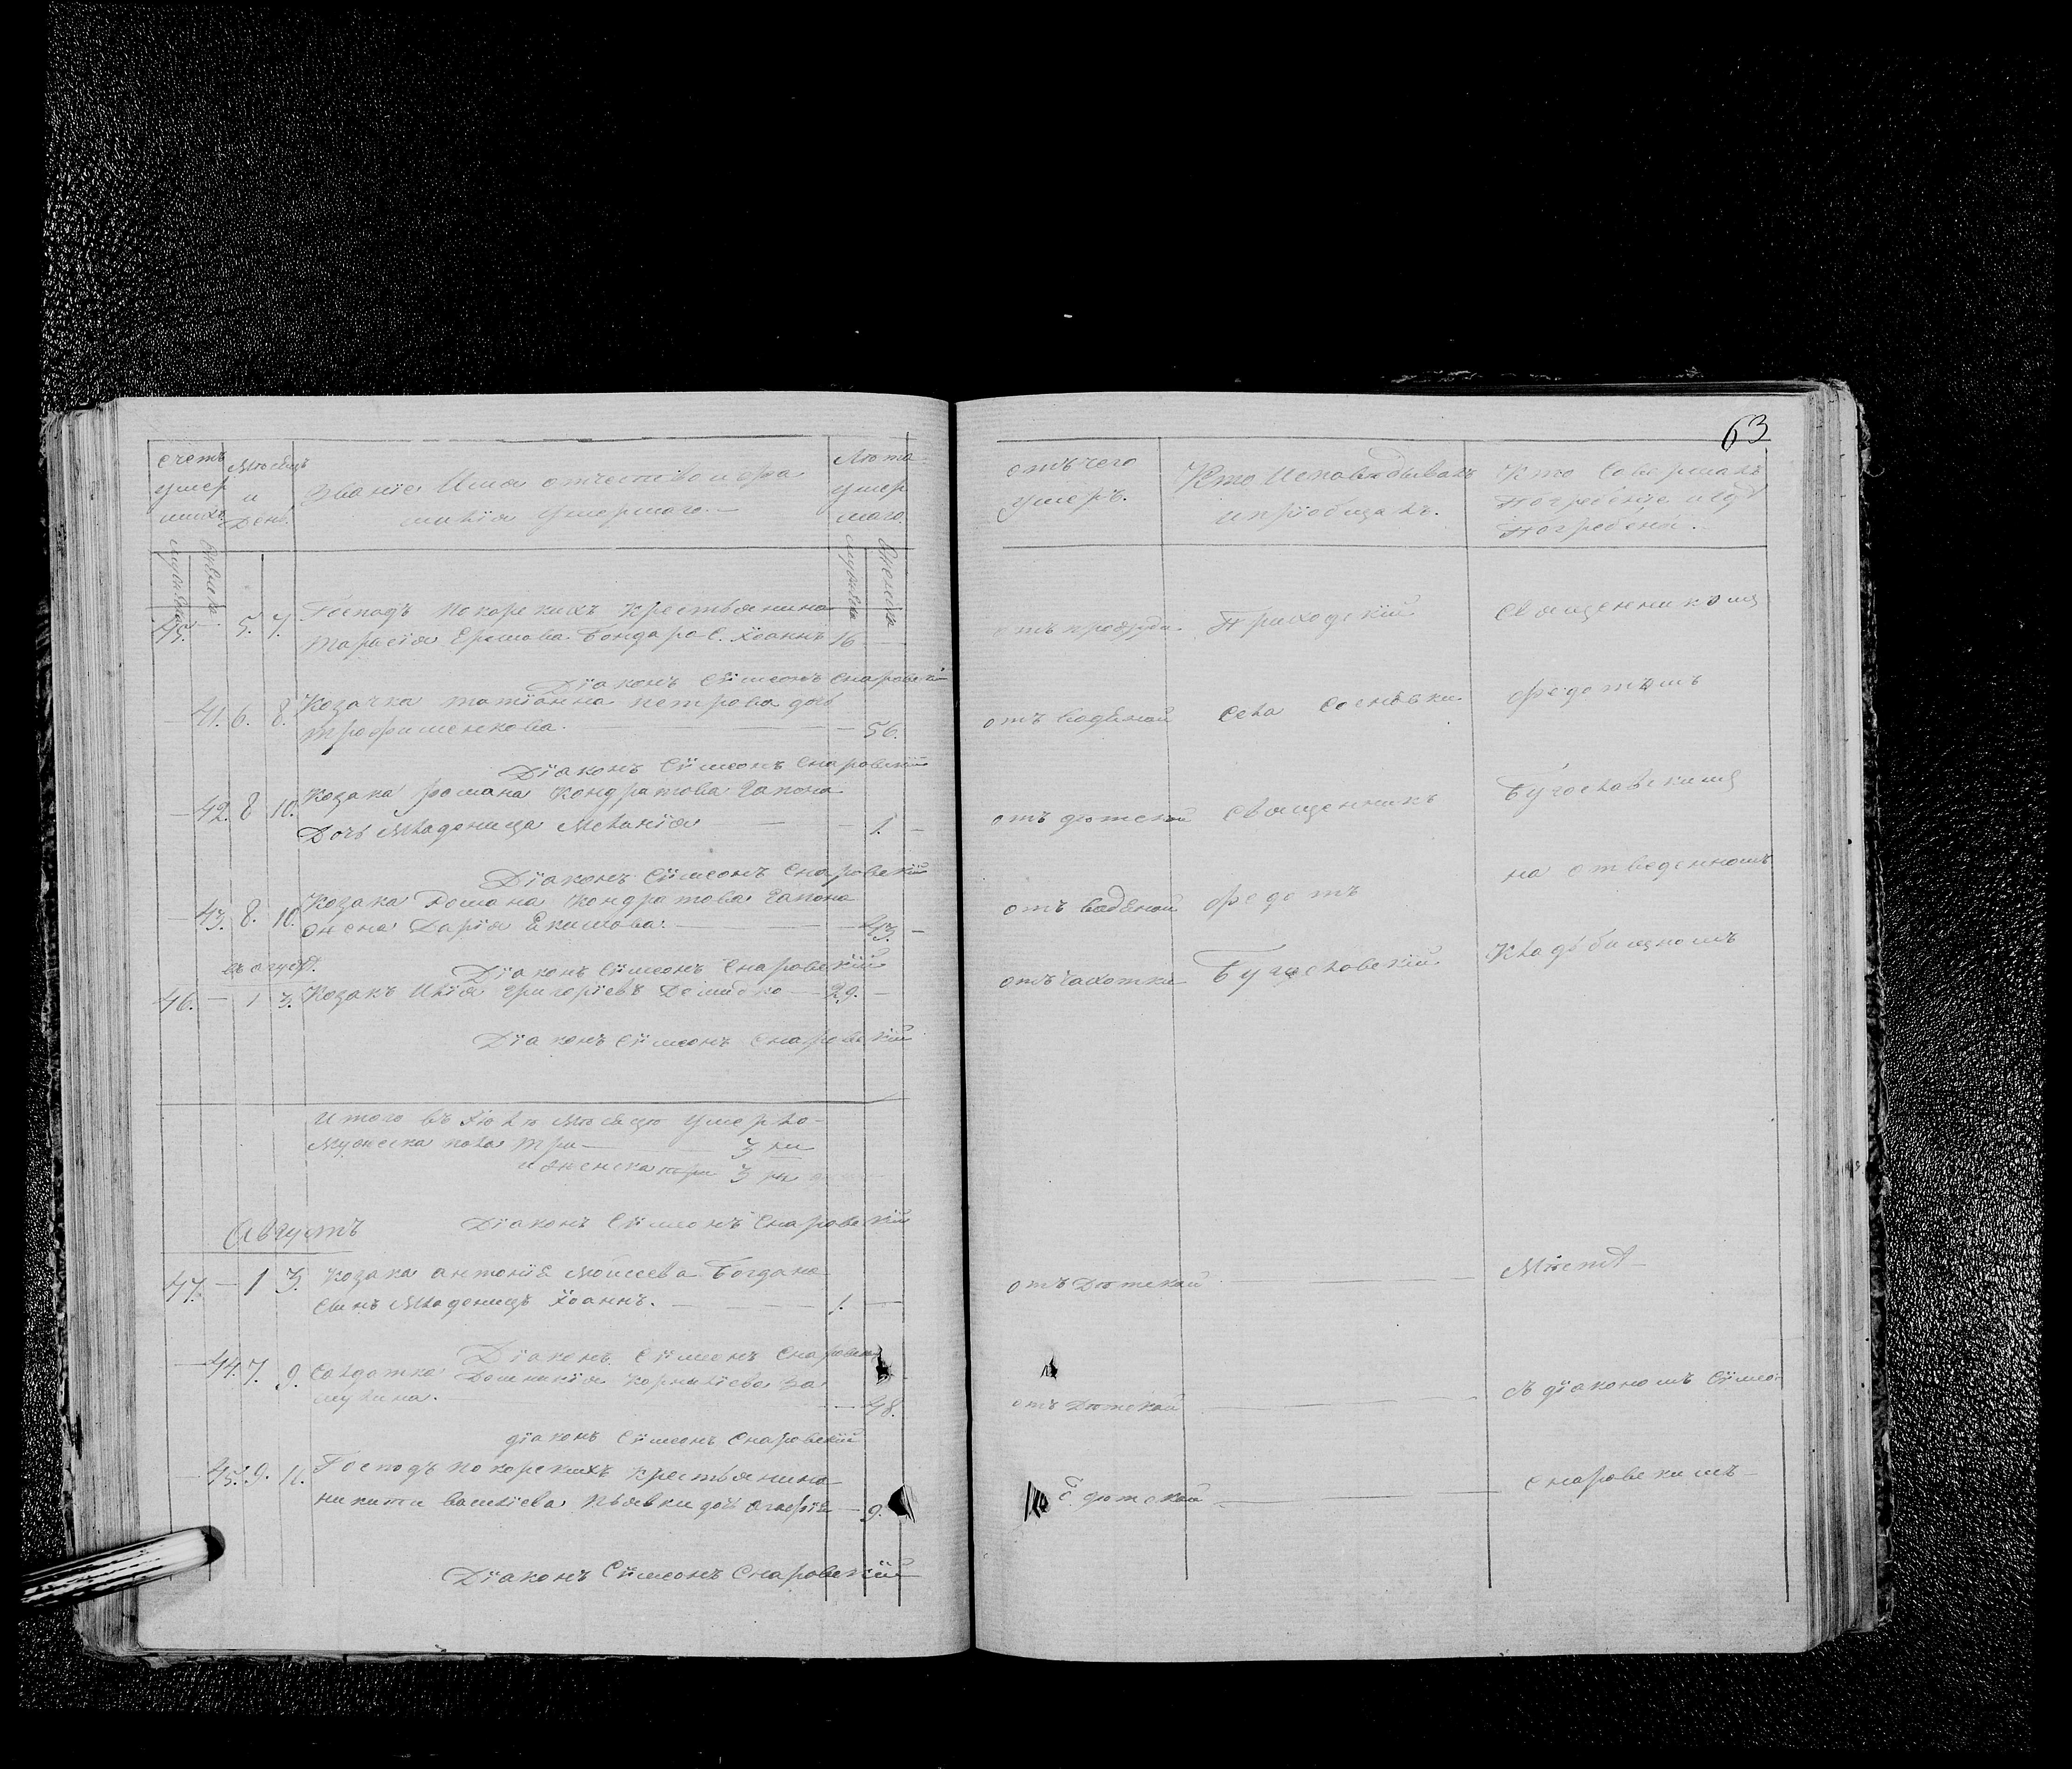 63
счетъ умер шихъ.
мужеска
женска
Мѣсяцъ и День.
Званіе Имя отчество и фа
милія умершаго.
Лѣта умер шаго.
мужска
женска
отъ чего умеръ.
Кто Исповѣдывалъ и пріобщалъ.
Кто Совершалъ Погребеніе и гдѣ Погребены.
45. — 5. 7. Господъ Покорскихъ Крестьянина
Тарасія Бондаря С. Іоаннъ 16 —
отъ простуды. Приходскій Священникомъ
Діаконъ Сѵмеонъ Снаровскій
— 41. 6. 8. Козачка татіанна петрова дочь
трофименкова. — 56.
отъ водяной Села Соснѣвки Федотомъ
Діаконъ Сѵмеонъ Снаровскій
— 42. 8 10. Козака романа Кондратова Гапона
Дочь Младеница Меланія — 1. —
отъ дѣтской Священникъ Бугославскимъ
Діаконъ Сѵмеонъ Снаровскій
— 43. 8. 10. Козака Романа Кондратова Гапона
жена Дарія Екимова. — 43. —
отъ водяной Федотъ на отведенномъ
въ август.
Діаконъ Сѵмеонъ Снаровскій
46. — 1 3. Козакъ Илія Григоріевъ Демидко — 29. —
отъ чахотки Бугославскій Кладбищномъ
Діаконъ Сѵмеонъ Снаровскій
Итого въ Іюлѣ Мѣсяцѣ умерло
Мужеска пола три — 3 ри
и женска три 3 ри
Діаконъ Сѵмеонъ Снаровскій
Августъ
47. — 1 3. Козака антонія Моисеева Богдана
Сынъ Младенецъ Іоаннъ. — 1. —
отъ Дѣтской — Мѣстѣ
Діаконъ Сѵмеонъ Снаровскій
— 44. 7. 9. Солдатка Домникія Корниліева За
мулина. — 48.
отъ Дѣтской — съ діакономъ Сѵмео
діаконъ Сѵмеонъ Снаровскій
— 45. 9. 11. Господъ покорскихъ крестьянина
никиты василіева Піявки дочь — 9.
дѣтской — Снаровскимъ
Діаконъ Сѵмеонъ Снаровскій